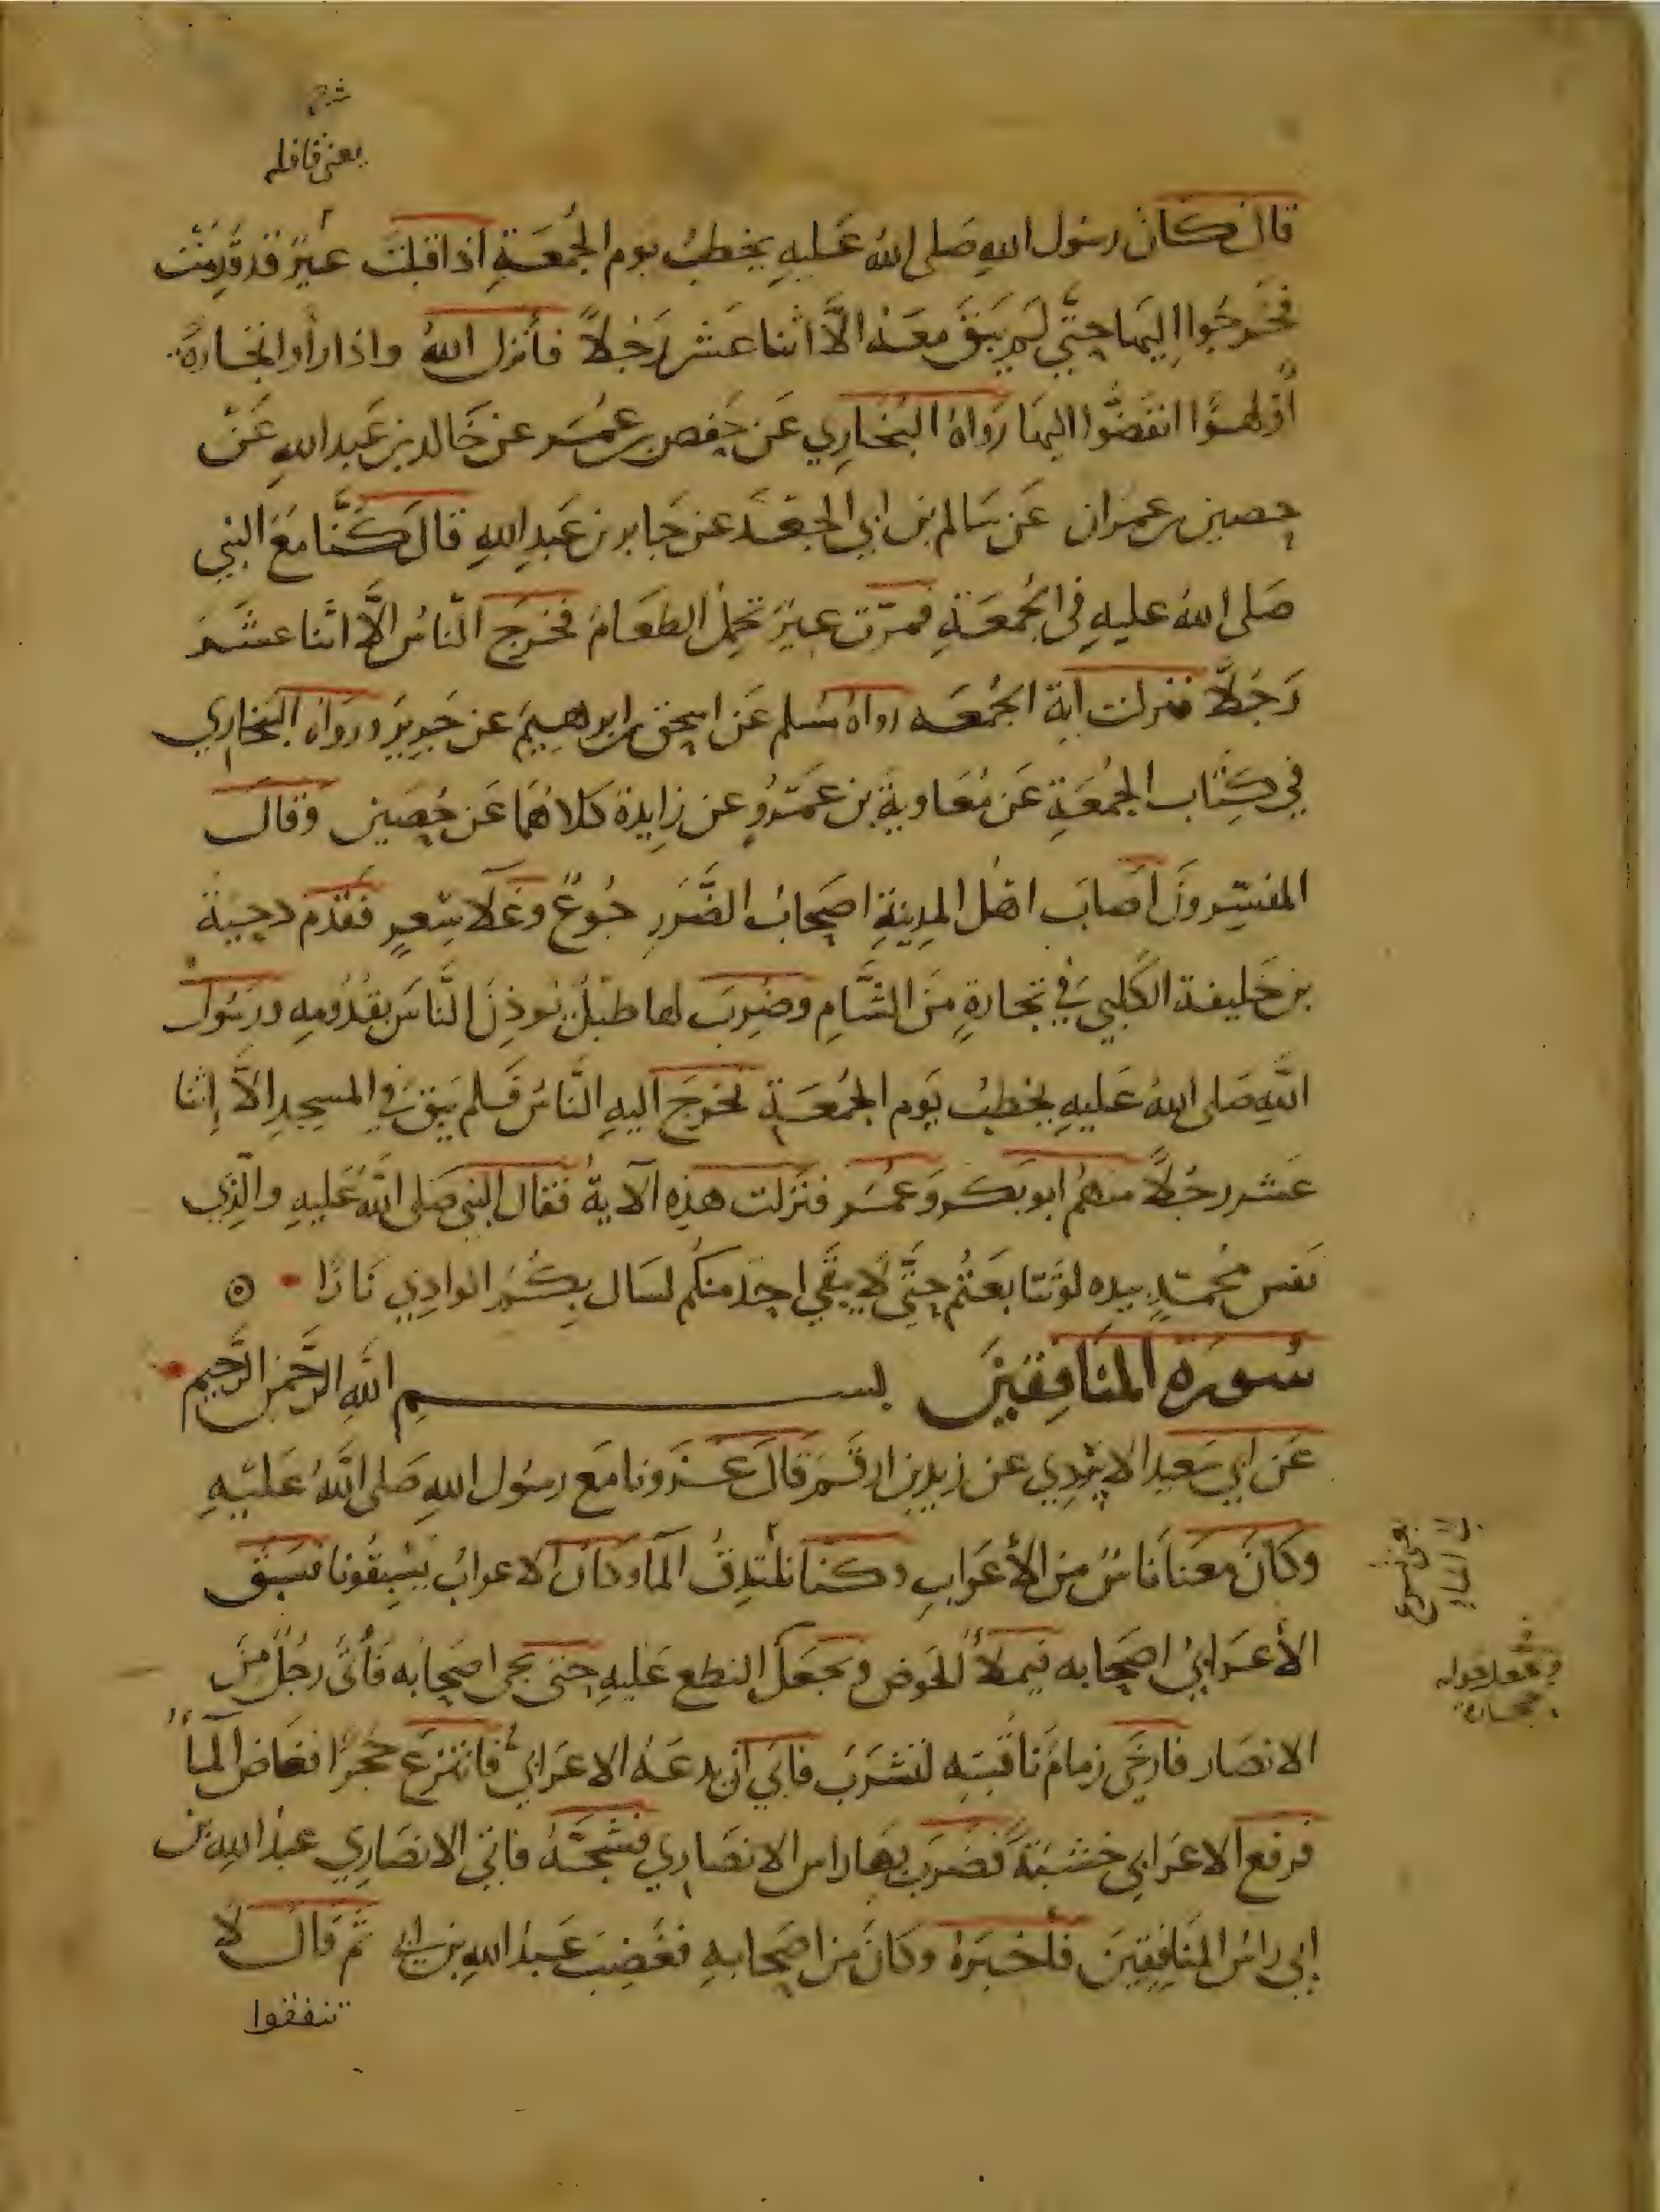 شرح
يعني قافلة
قال كان رسول الله صَلى الله عَليهِ يخطبُ يوم الجُمعَةِ اذ اقبلت عيرٌ قد قَدِمَتْ
فخَرجُوا اليها حتَّى لم يَبقَ مَعَه الاَّ اثنا عَشر رَجُلاً فأنزل اللهُ واذا رأوا تجارةً
أوْ لهوًا انفَضُّوا اليهَا رَواهُ البُخَارِي عَن حَفص بن عُمَر عن خَالد بن عَبد اللهِ عَنْ
حصين بن عمران عَن سَالم بن ابي الجعْد عن جَابر بن عَبدِ اللهِ قالَ كُنَّا مَعَ النبي
صَلى اللهُ عليهِ في الجُمعَةِ فمرّت عيرٌ تحمِلُ الطعَامَ فخرَج النّاسُ الاَّ اثنا عشَر
رَجُلاً فنزلت اية الجُمعَه رواهُ مُسلم عَن اسحق بن ابرهيمَ عن جَريرٍ ورَوَاه البُخاري
في كِتاب الجُمعَةِ عَن مُعَاويةَ بن عَمْرٍو عن زايدة كلاهُمَا عَن حُصَين وقالَ
المفسّرونَ اصابَ اهْل المدِينةِ اصحابُ الضَّرَرِ جُوعٌ وغَلاَ سِعرٍ فقَدِم دحيَةُ
بن خَليفة الكلبي في تجارةٍ مِنَ الشَّامِ وضُرِبَ لها طبْلٌ يُوذِنُ النَّاسَ بقدُومِهِ ورَسُول
اللهِ صَلى اللهُ عَليهِ يخطبُ يَوم الجُمعَةِ فخرَجَ اليهِ النَّاسُ فَلم يَبقَ في المسجِدِ الاَّ إثنا
عَشر رجُلاً منهُم ابو بَكر وَعُمَر فنَزلت هذِه الآيةُ فقال النبي صَلى اللهُ عَليهِ والّذِي
نفس مُحمّدٍ بيدِه لو تَتابعْتُم حتَّى لا يبقَى احَدٌ منكُم لسَال بِكُمُ الوادِي نَارًا
سُورَة المنَافِقينَ بسم اللهِ الرَّحمٰنِ الرَّحِيمِ
عَن ابي سَعيد الازدِي عن زيد بن ارقَم قالَ غَزَونا مَع رسُول اللهِ صَلى اللهُ عَليهِ
وكانَ معَنا نَاسٌ مِن الأعَرابِ وكنا نَبْتدِرُ المآ وكان الاعرابُ يَسْبقُونا فسَبقَ
الأعرَابيُ اصحَابه فيملأُ الحَوض ويجعَلُ النطع عَليهِ حتى يجي اصحَابُه فأتى رجُلٌ مِنَ
الانصَار فارخَى زمامَ نَاقَتِهِ لتشرَبَ فابَى ان يدعَهُ الاعرَابيُ فانتزع حجَرًا فغاض المآ
فرفع الاعرَابي خشبَةً فضرَبَ بهَا راس الانصَارِي فشجَّهُ فاتى الانصَارِي عبدُ الله بن
ابي راسُ المنَافِقِينَ فأخبَرهُ وكانَ من اصحَابِهِ فغضِبَ عَبدُ اللهِ بن ابي ثم قالَ لا
تنفقوا